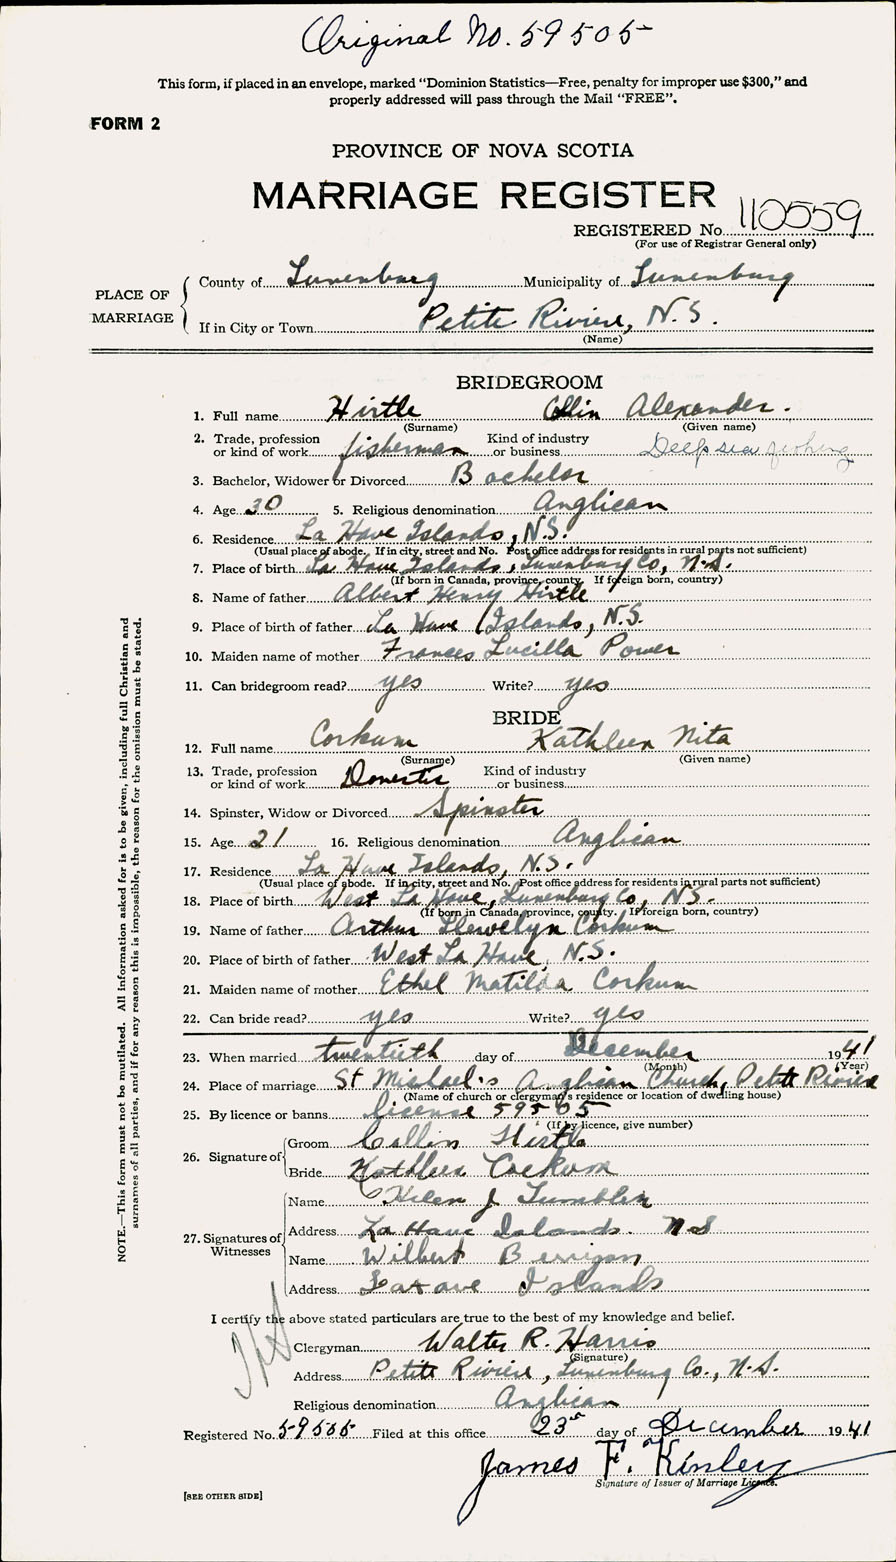 Original No. 59505
This form, if placed in an envelope, marked "Dominion Statistics—Free, penalty for improper use $300," and
properly addressed will pass through the Mail "FREE".
FORM 2
PROVINCE OF NOVA SCOTIA
MARRIAGE REGISTER
REGISTERED No. 110559
(For use of Registrar General only)
PLACE OF MARRIAGE
County of Lunenburg Municipality of Lunenburg
If in City or Town Petite Riviere, N.S.
(Name)
BRIDEGROOM
1. Full name Hirtle Collin Alexander.
(Surname) (Given name)
2. Trade, profession or kind of work fisherman Kind of industry or business Deep sea fishing
3. Bachelor, Widower or Divorced Bachelor
4. Age 30 5. Religious denomination Anglican
6. Residence La Have Islands, N.S.
(Usual place of abode. If in city, street and No. Post office address for residents in rural parts not sufficient)
7. Place of birth La Have Islands, Lunenburg Co, N.S.
(If born in Canada, province, county. If foreign born, country)
8. Name of father Albert Henry Hirtle
9. Place of birth of father La Have Islands, N.S.
10. Maiden name of mother Frances Lucilla Power
11. Can bridegroom read? yes Write? yes
BRIDE
12. Full name Corkum Kathleen Nita
(Surname) (Given name)
13. Trade, profession or kind of work Domestic Kind of industry or business
14. Spinster, Widow or Divorced Spinster
15. Age 21 16. Religious denomination Anglican
17. Residence La Have Islands, N.S.
(Usual place of abode. If in city, street and No. Post office address for residents in rural parts not sufficient)
18. Place of birth West La Have, Lunenburg Co, NS.
(If born in Canada, province, county. If foreign born, country)
19. Name of father Arthur Llewelyn Corkum
20. Place of birth of father West La Have, N.S.
21. Maiden name of mother Ethel Matilda Corkum
22. Can bride read? yes Write? yes
23. When married twentieth day of December 1941
(Month) (Year)
24. Place of marriage St Michael's Anglican Church, Petite Riviere
(Name of church or clergyman's residence or location of dwelling house)
25. By licence or banns license 59505
(If by licence, give number)
26. Signature of
Groom Collin Hirtle
Bride Kathleen Corkum
27. Signatures of Witnesses
Name Helen J Tumblin
Address La Have Islands. N S
Name Wilbert Berrigan
Address Lahave Islands
I certify the above stated particulars are true to the best of my knowledge and belief.
Clergyman Walter R. Harris
(Signature)
Address Petite Riviere, Lunenburg Co., N.S.
Religious denomination Anglican
Registered No. 59505 Filed at this office 23rd day of December 1941
James F. Kinley
Signature of Issuer of Marriage Licence.
[SEE OTHER SIDE]
NOTE.—This form must not be mutilated. All information asked for is to be given, including full Christian and
surnames of all parties, and if for any reason this is impossible, the reason for the omission must be stated.